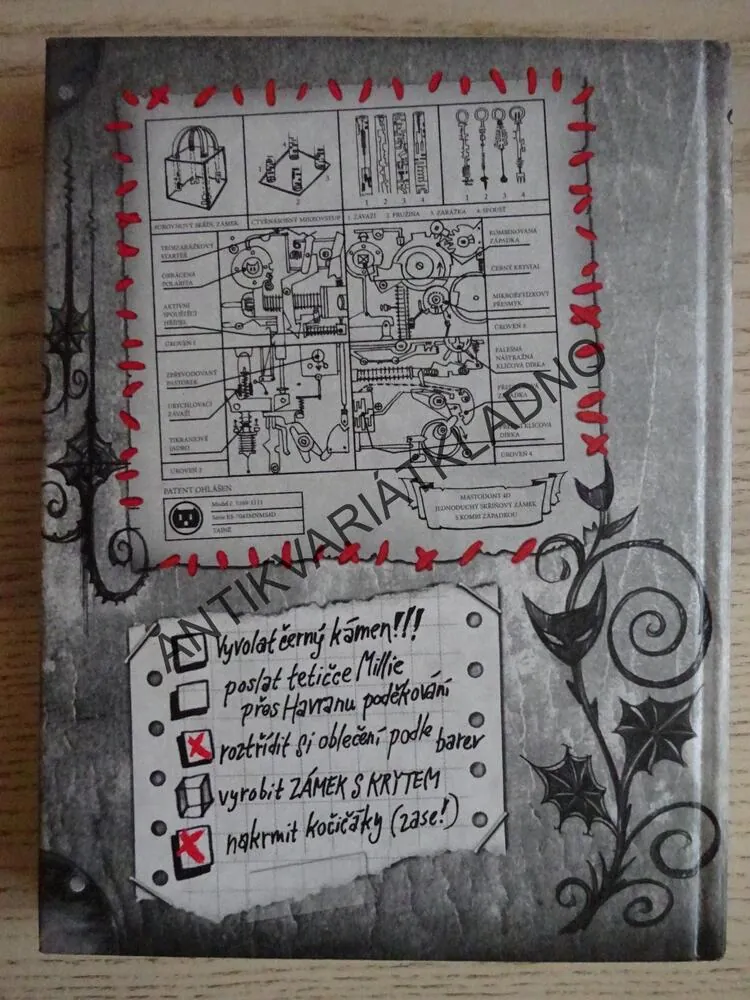 3UROVŇOVÝ SKŘÍŇ. ZÁMEK
ČTYŘNÁSOBNÝ MIKROVSTUP
1. ZÁVAŽÍ 2. PRUŽINA 3. ZARÁŽKA 4. SPOUŠŤ
1
2
3
4
1
2
3
4
TROJZARÁŽKOVÝ
STARTÉR
OBRÁCENÁ
POLARITA
AKTIVNÍ
SPOUŠTĚCÍ
HŘÍDEL
ÚROVEŇ 1
KOMBINOVANÁ
ZÁPADKA
ČERNÝ KRYSTAL
MIKROŘETÍZKOVÝ
PŘESMYK
ÚROVEŇ 3
ZPŘEVODOVANÝ
PASTOREK
URYCHLOVACÍ
ZÁVAŽÍ
TIKRANIOVÉ
JÁDRO
ÚROVEŇ 2
FALEŠNÁ
NÁSTRAŽNÁ
KLÍČOVÁ DÍRKA
ZÁPADKA
KLÍČOVÁ
DÍRKA
ÚROVEŇ 4
PATENT OHLÁŠEN
TAJNÉ
MASTODONT 4D
JEDNODUCHÝ SKŘÍŇOVÝ ZÁMEK
S KOMBI ZÁPADKOU
ANTIKVARIÁTKLADNO
Vyvolat černý kámen!!!
poslat tetičce Millie
přes Havranu poděkování
roztřídit si oblečení podle barev
vyrobit ZÁMEK S KRYTEM
nakrmit kočičáky (zase!)